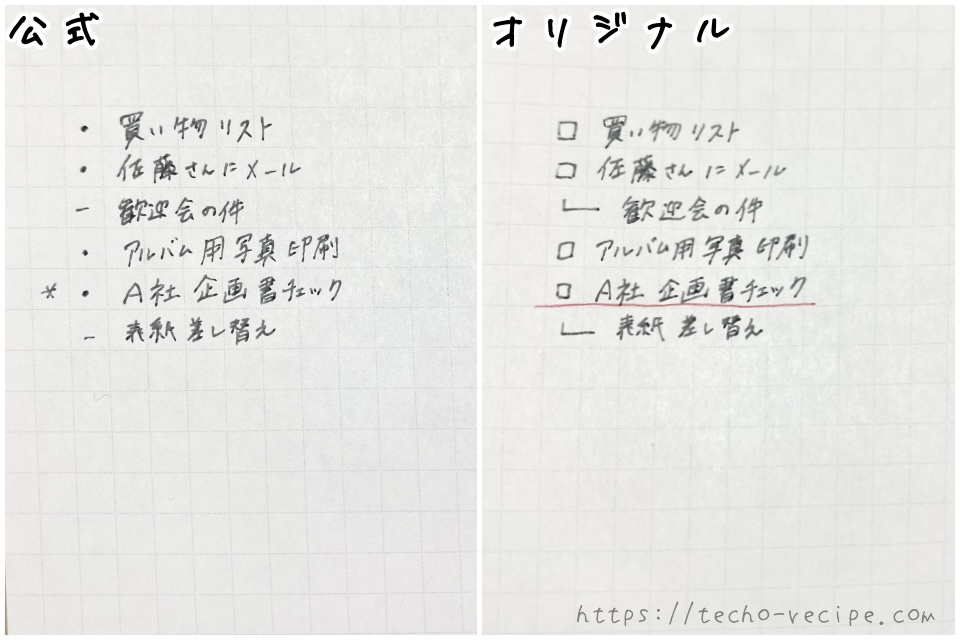 公式
・ 買い物リスト
・ 佐藤さんにメール
－ 歓迎会の件
・ アルバム用写真印刷
* ・ A社 企画書チェック
－ 表紙差し替え
オリジナル
□ 買い物リスト
□ 佐藤さんにメール
歓迎会の件
□ アルバム用写真印刷
□ A社 企画書チェック
表紙差し替え
https://techo-recipe.com